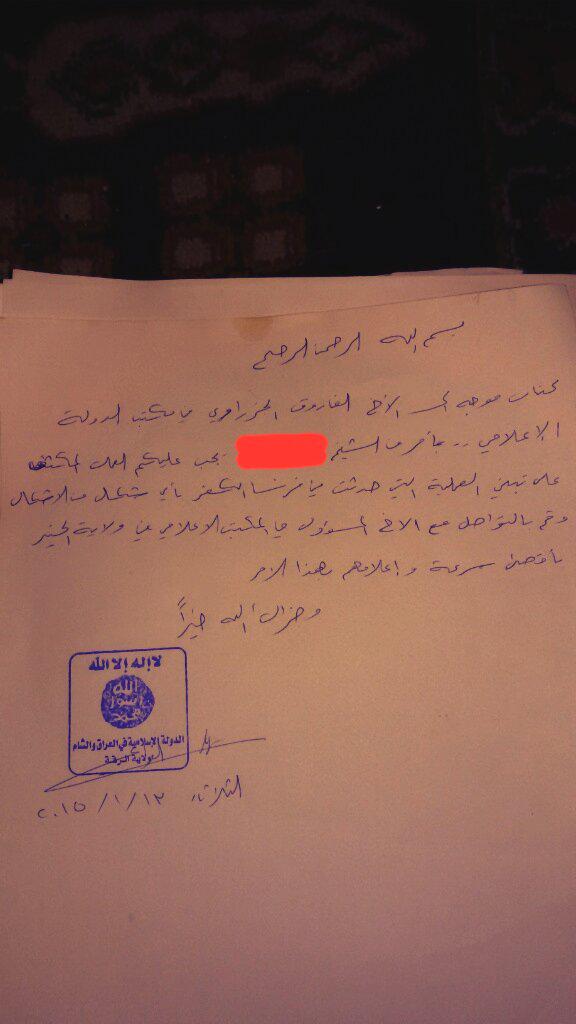 بسم الله الرحمن الرحيم
كتاب موجه إلى الأخ الفاروق الجزراوي من مكتب الدولة
الإعلامي .. بأمر من الشيخ يجب عليكم العمل المكثف
على تبني العملية التي حدثت في فرنسا الكفر بأي شكل من الأشكال
وقم بالتواصل مع الأخ المسؤول في المكتب الاعلامي في ولاية الخير
بأقصى سرعة و إعلامهم بهذا الأمر
وجزاك الله خيراً
لا إله إلا الله
الله
رسول
محمد
الدولة الإسلامية في العراق والشام
ولاية الرقة
الثلاثاء ٢٠١٥/١/١٣